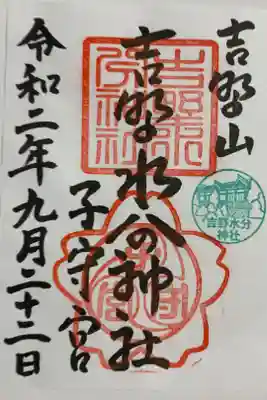 吉野山
吉野水分神社
子守宮
令和二年九月二十二日
吉野水分神社